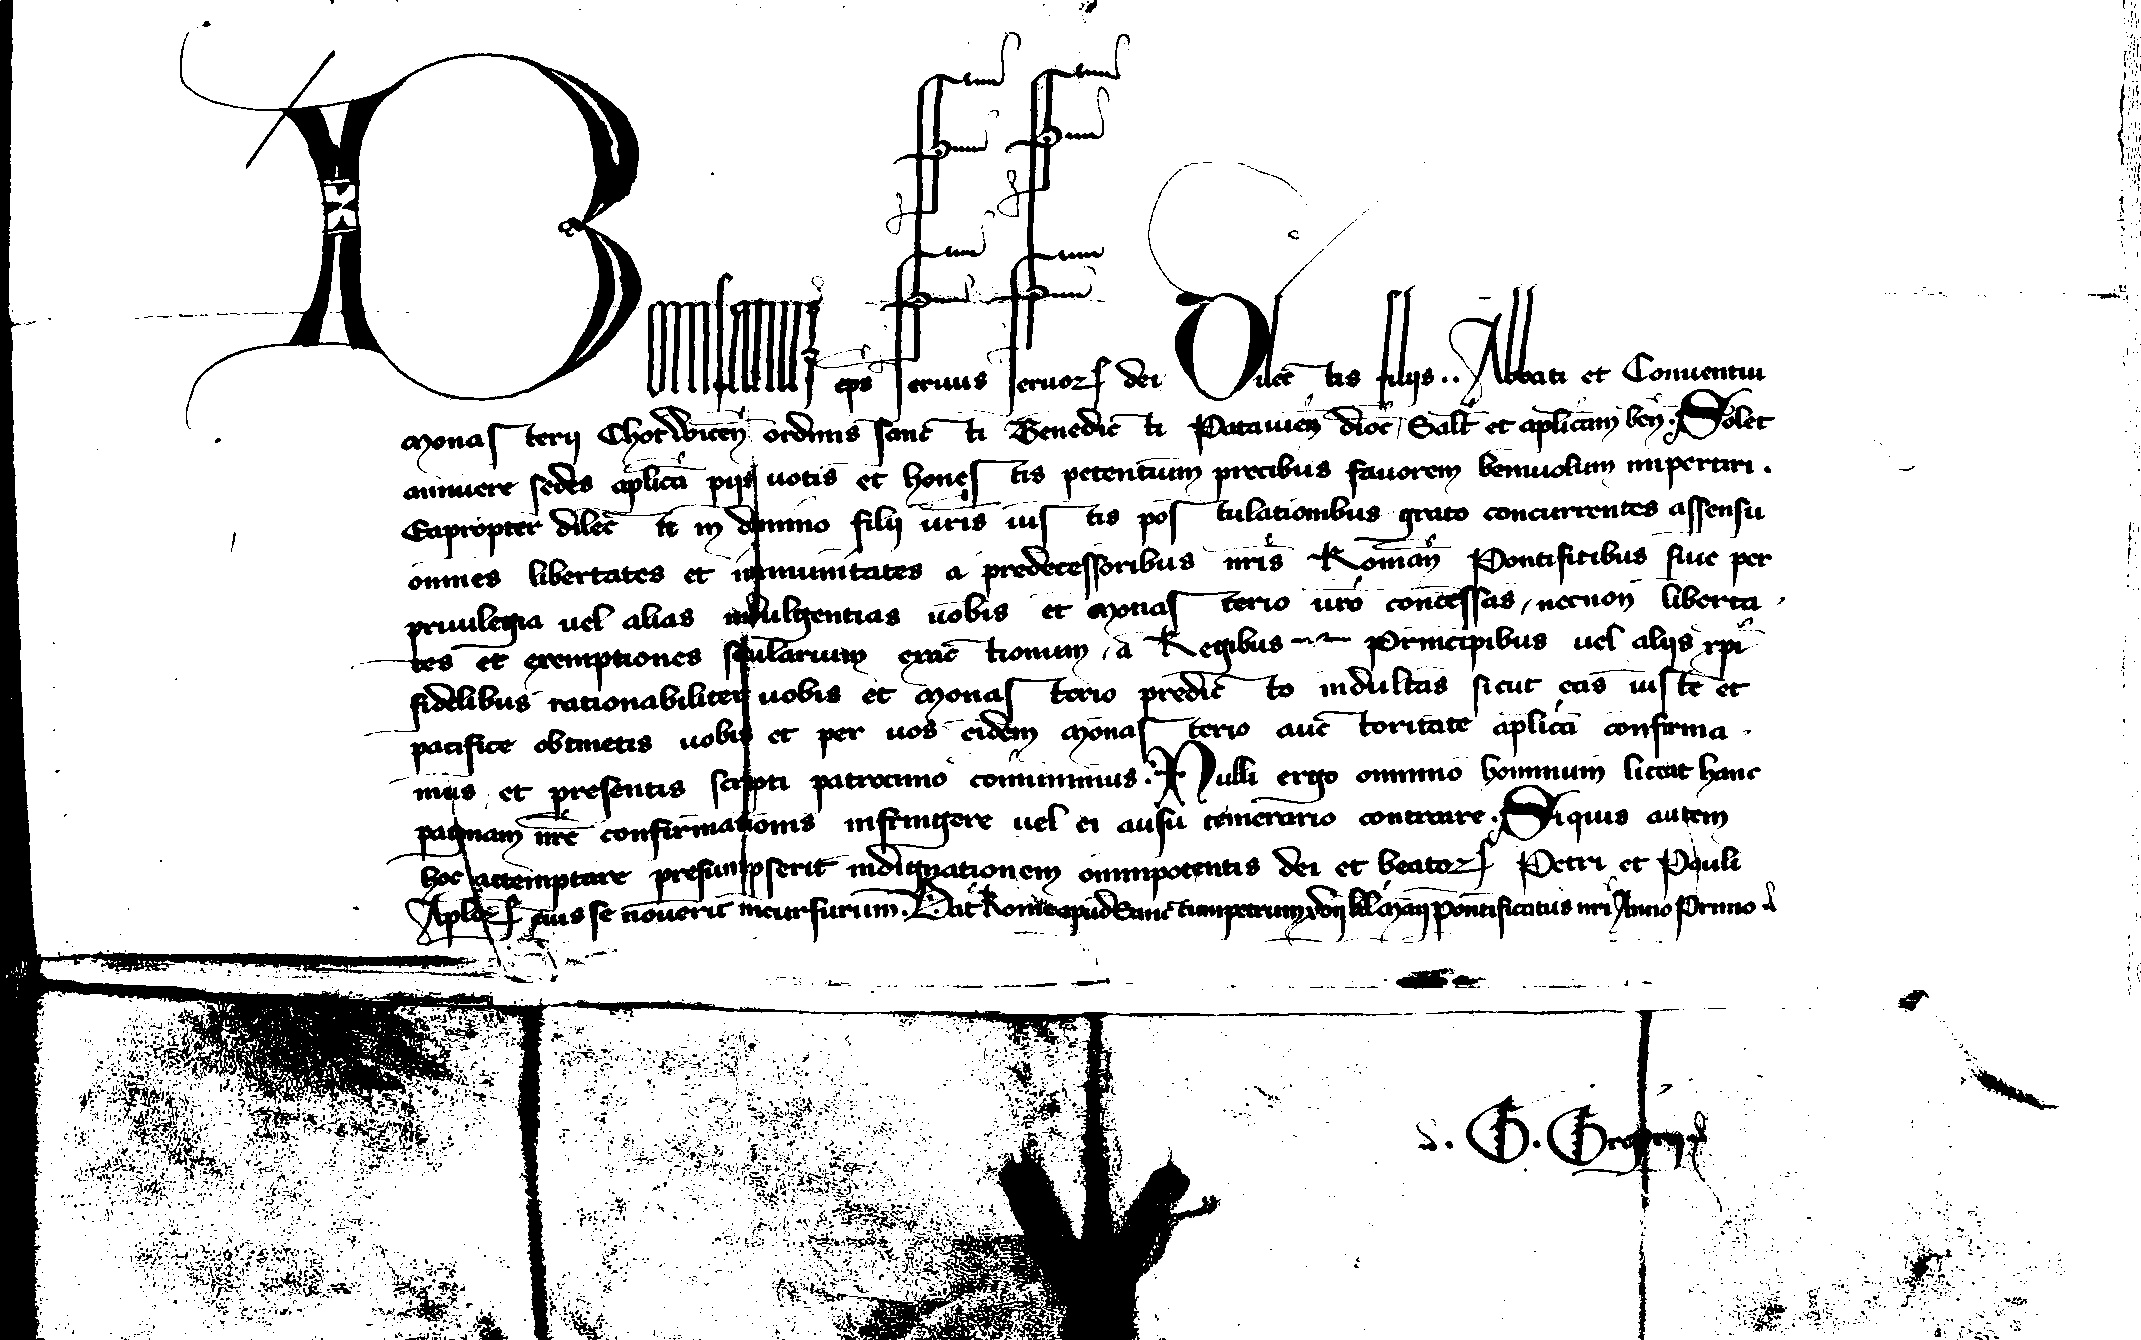 Bonifatius eps seruus seruor dei Dilectis filiis .. Abbati et Conuentui
monasterij Chotwicen ordinis sancti Benedicti Patauien dioc Salt et aplicam ben. Solet
annuere sedes aplica pijs uotis et honestis petentium precibus fauorem beniuolum impertiri.
Eapropter dilecti in domino filij uris iustis postulationibus grato concurrentes assensu
omnes libertates et immunitates a predecessoribus nris Roman Pontificibus siue per
priuilegia uel alias indulgentias uobis et monasterio uro concessas, necnon liberta
tes et exemptiones secularium exactionum, a Regibus Principibus uel alijs xpi
fidelibus rationabiliter uobis et monasterio predicto indultas sicut eas iuste et
pacifice obtinetis uobis et per uos eidem monasterio auctoritate aplica confirma
mus et presentis scripti patrocinio comunimus. Nulli ergo omnino hominum liceat hanc
paginam nre confirmationis infringere uel ei ausu temerario contraire. Siquis autem
hoc attemptare presumpserit indignationem omnipotentis dei et beator Petri et Pauli
Aplor eius se nouerit incursurum. Dat Rome apud Sanctumpetrum kl maij Pontificatus nri Anno Primo
G.